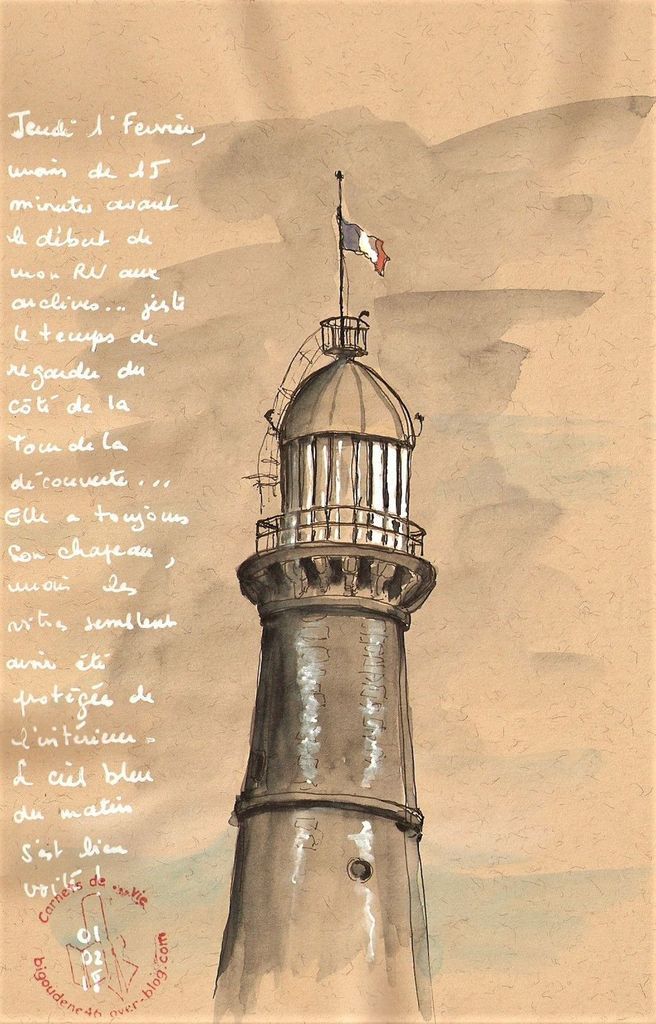 Jeudi 1er Février,
moins de 15
minutes avant
le début de
mon RV aux
archives... juste
le temps de
regarder du
côté de la
Tour de la
découverte...
Elle a toujours
son chapeau,
mais les
vitres semblent
avoir été
protégées de
l'intérieur.
Le ciel bleu
du matin
s'est bien
voilé!
Carnets de ... vie
01
02
bigoudene46.over-blog.com